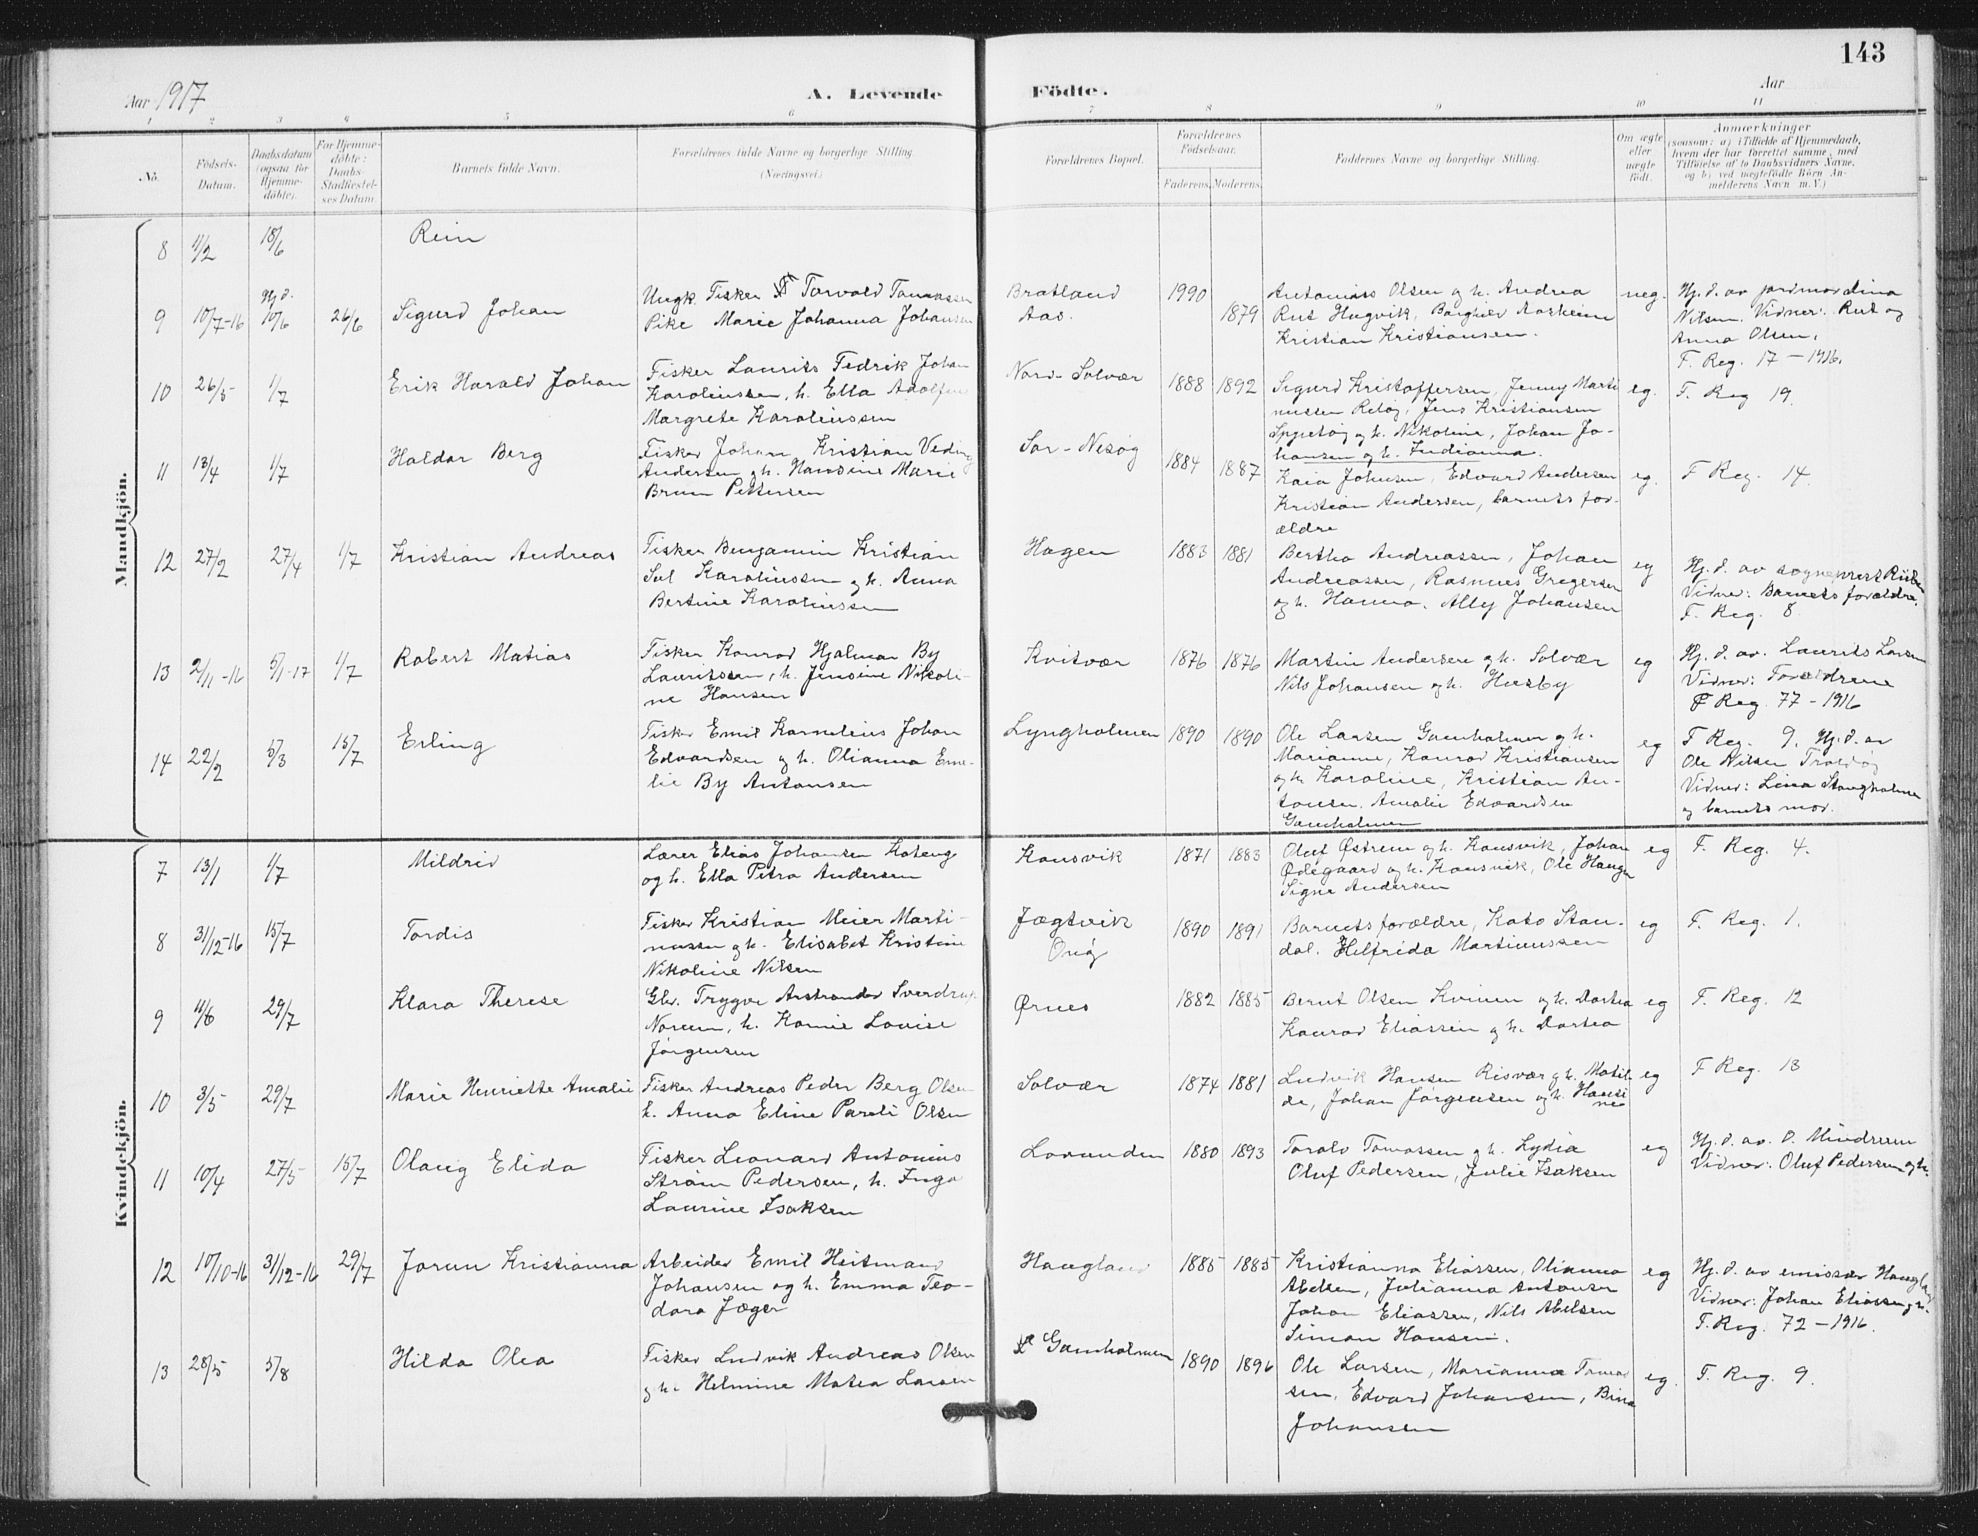 143
Aar 1917
A. Levende Födte.
Aar
1 2 3 4 5 6 7 8 9 10 11
No.
Födsels-
Datum.
Daabsdatum
(ogsaa for
Hjemme-
döbte).
For Hjemme-
döbte:
Daabs-
Stadfæstel-
ses Datum.
Barnets fulde Navn.
Forældrenes fulde Navne og borgerlige Stilling.
(Næringsvei.)
Forældrenes Bopæl.
Forældrenes
Födselsaar.
Faderens. Moderens.
Faddernes Navne og borgerlige Stilling.
Om ægte
eller
uægte
födt.
Anmærkninger
(saasom: a) i Tilfælde af Hjemmedaab,
hvem der har forrettet samme, med
Tilföielse af to Daabsvidners Navne,
og b) ved uægtefödte Börn An-
melderens Navn m. V.)
Mandkjön.
8 1/2 18/6 Rein
9 10/7-16 Hj.d. 10/6 26/6 Sigurd Johan
Ungk. Fisker Torvald Tomassen
Pike Marie Johanna Johansen
Bratland
Aas.
1990 1879
Antonius Olsen og h. Andrea
Rut Hugvik, Borghild Aasheim
Kristian Kristiansen.
ueg.
Hj. d. av jordmor Lina
Nilsen. Vidner: Rut og
Anna Olsen.
F. Reg. 17 - 1916.
10 26/5 1/7 Erik Harald Johan
Fisker Laurits Fedrik Johan
Karolinssen, h. Ella Adolfine
Margrete Karolinssen
Nord-Solvær 1888 1892
Sigurd Kristoffersen, Jenny Marti
nussen Reløy, Jens Kristiansen
og h. Nikoline, Johan Jo-
hansen og h. Indianna.
eg. F. Reg 19.
11 13/4 1/7 Haldor Berg
Fisker Johan Kristian Veding
Andersen og h. Hansine Marie
Bruun Pettersen
Sør-Nesøy 1884 1887
Kaia Johnsen, Edvard Andersen
Kristian Andersen, barnets for-
ældre
eg. F Reg. 14.
12 27/2 27/4 1/7 Kristian Andreas
Fisker Benjamin Kristian
Karolinssen og h. Anna
Bertine Karolinssen
Hagen 1883 1881
Bertha Andreassen, Johan
Andreassen, Rasmus Gregersen
og h. Hanna. Ally Johansen
eg
Hj. d. av sogneprest
Vidner: Barnets forældre.
F. Reg. 8
13 2/11-16 5/1-17 1/7 Robert Matias
Fisker Konrad Hjalmar By
Lauritssen, h. Jensine Nikoli-
ne Hansen
Kvitvær 1876 1876
Martin Andersen og h. Solvær
Nils Johansen og h. Husby
eg
Hj. d. av. Laurits Larsen
Vidner: Forældrene
F Reg. 77 - 1916
14 22/2 5/3 15/7 Erling
Fisker Emil Kornelius Johan
Edvardsen og h. Olianna Eme-
lie By Antonsen
Lyngholmen 1890 1890
Ole Larsen Gamholmen og h.
Marianne, Konrad Kristiansen
og h. Karoline, Kristian An-
tonsen. Amalie Edvardsen
Gamholmen
eg
F Reg. 9. Hj. d. av
Ole Nilsen Troldøy
Vidner: Lina Stangholmen
og barnets mor.
Kvindekjön.
7 13/1 1/7 Mildrid
Lærer Elias Johansen Koteng
og h. Ella Petra Andersen
Konsvik 1871 1883
Oluf Østrem og h. Konsvik, Johan
Ødegaard og h. Konsvik, Ole Haugen
Signe Andersen
eg F. Reg. 4.
8 31/12-16 15/7 Tordis
Fisker Kristian Meier Marti-
nussen og h. Elisabet Kristine
Nikoline Nilsen
Jægtvik
Onøy
1890 1891
Barnets forældre, Kato Stan-
dal. Helfrida Martinussen
eg F. Reg. 1.
9 4/6 29/7 Klara Therese
Gbr. Trygve Astrander Sverdrup
Norum, h. Kamie Lovise
Jørgensen
Ørnes 1882 1885
Bernt Olsen Kvinen og h. Dortea
Konrad Eliassen og h. Dortea
eg F. Reg. 12
10 3/5 29/7 Marie Henriette Amalie
Fisker Andreas Peder Berg Olsen
h. Anna Eline Pareli Olsen
Solvær 1874 1881
Ludvik Hansen Risvær og h. Matil
de, Johan Jørgensen og h. Hansi
ne
eg F Reg. 13
11 10/4 27/5 15/7 Olaug Elida
Fisker Leonard Antonius
Strøm Pedersen, h. Inga
Laurine Isaksen
Lovunden 1880 1893
Toralv Tomassen og h. Lydia
Oluf Pedersen, Julie Isaksen
eg
Hj. d. av. O. Mindrum
Vidner: Oluf Pedersen og h.
12 10/10-16 31/12-16 29/7 Jorun Kristianna
Arbeider Emil Heitmann
Johansen og h. Emma Teo-
dora Jæger
Haugland 1885 1885
Kristianna Eliassen, Olianna
Abelsen, Julianna Antonsen
Johan Eliassen, Nils Abelsen
Simon Hansen.
eg
Hj. d. av emissær Haugland
Vidner: Johan Eliassen og h.
F. Reg. 72 - 1916.
13 28/5 5/8 Hilda Olea
Fisker Ludvik Andreas Olsen
og h. Helmine Matea Larsen
Gamholmen 1890 1896
Ole Larsen, Marianna Tomas
sen, Edvard Johansen, Bina
Johansen
eg. F. Reg. 9.